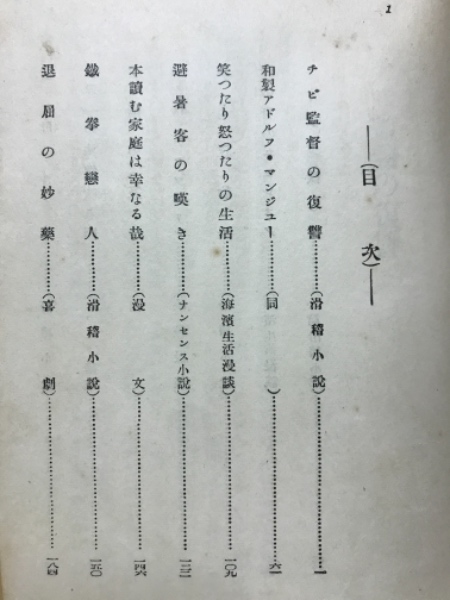 1
――(目次)――
チビ監督の復讐…………(滑稽小說)…………一
和製アドルフ・マンジユー…………(同)…………六一
笑つたり怒つたりの生活…………(海濱生活漫談)…………一〇九
避暑客の嘆き…………(ナンセンス小說)…………一三二
本讀む家庭は幸なる哉…………(漫文)…………一四六
鐵拳戀人…………(滑稽小說)…………一五〇
退屈の妙藥…………(喜劇)…………一八四